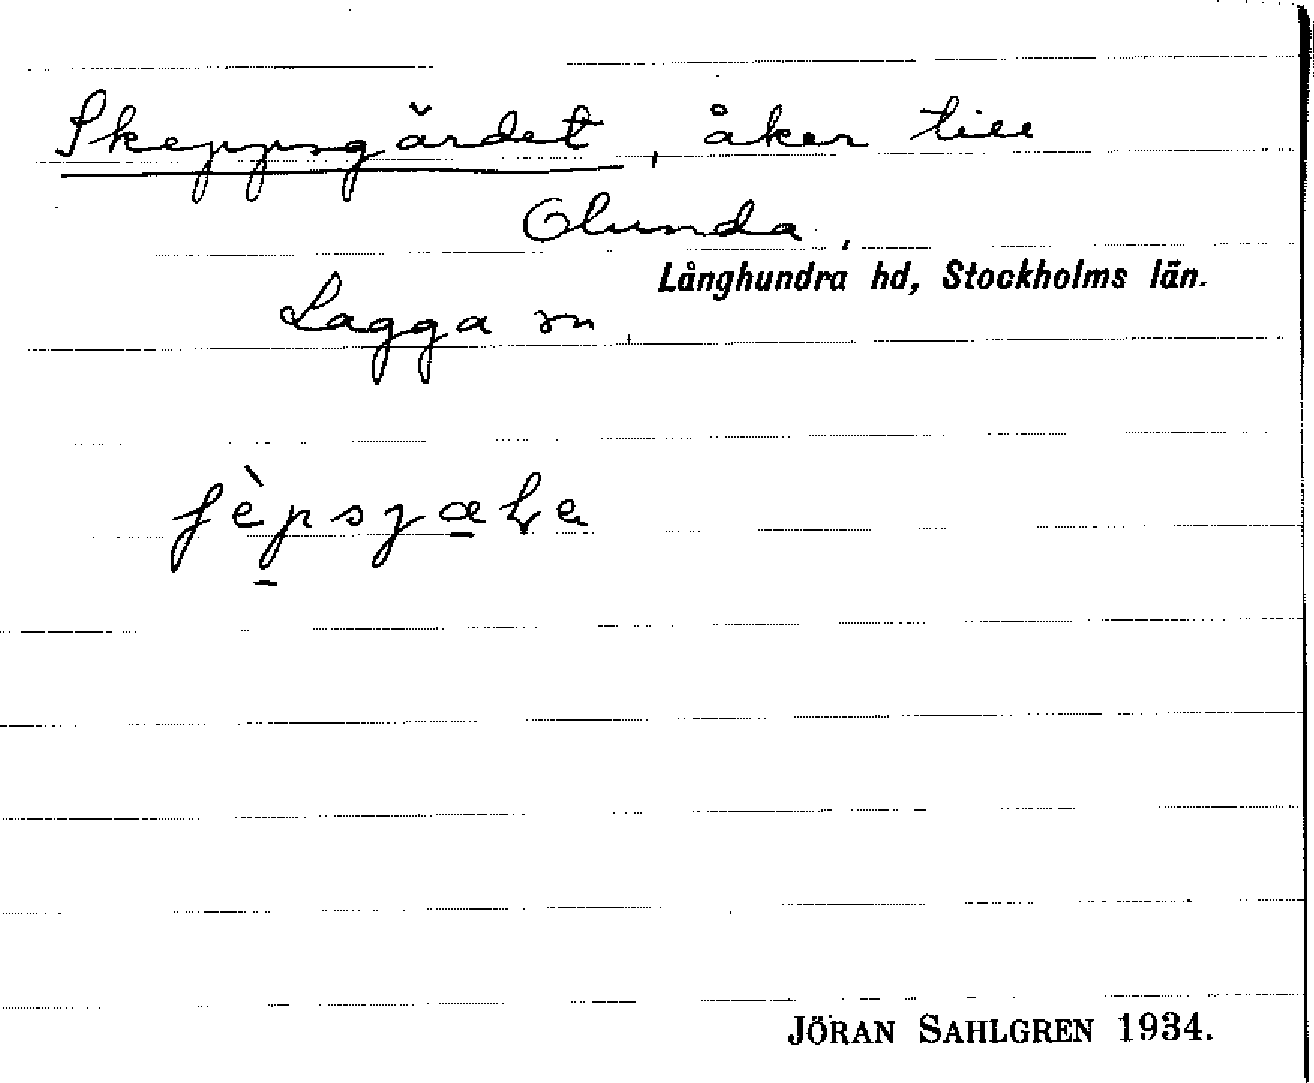 Skeppsgärdet, åker till
Olunda,
Långhundra hd, Stockholms län.
Lagga sn,
JÖRAN SAHLGREN 1934.